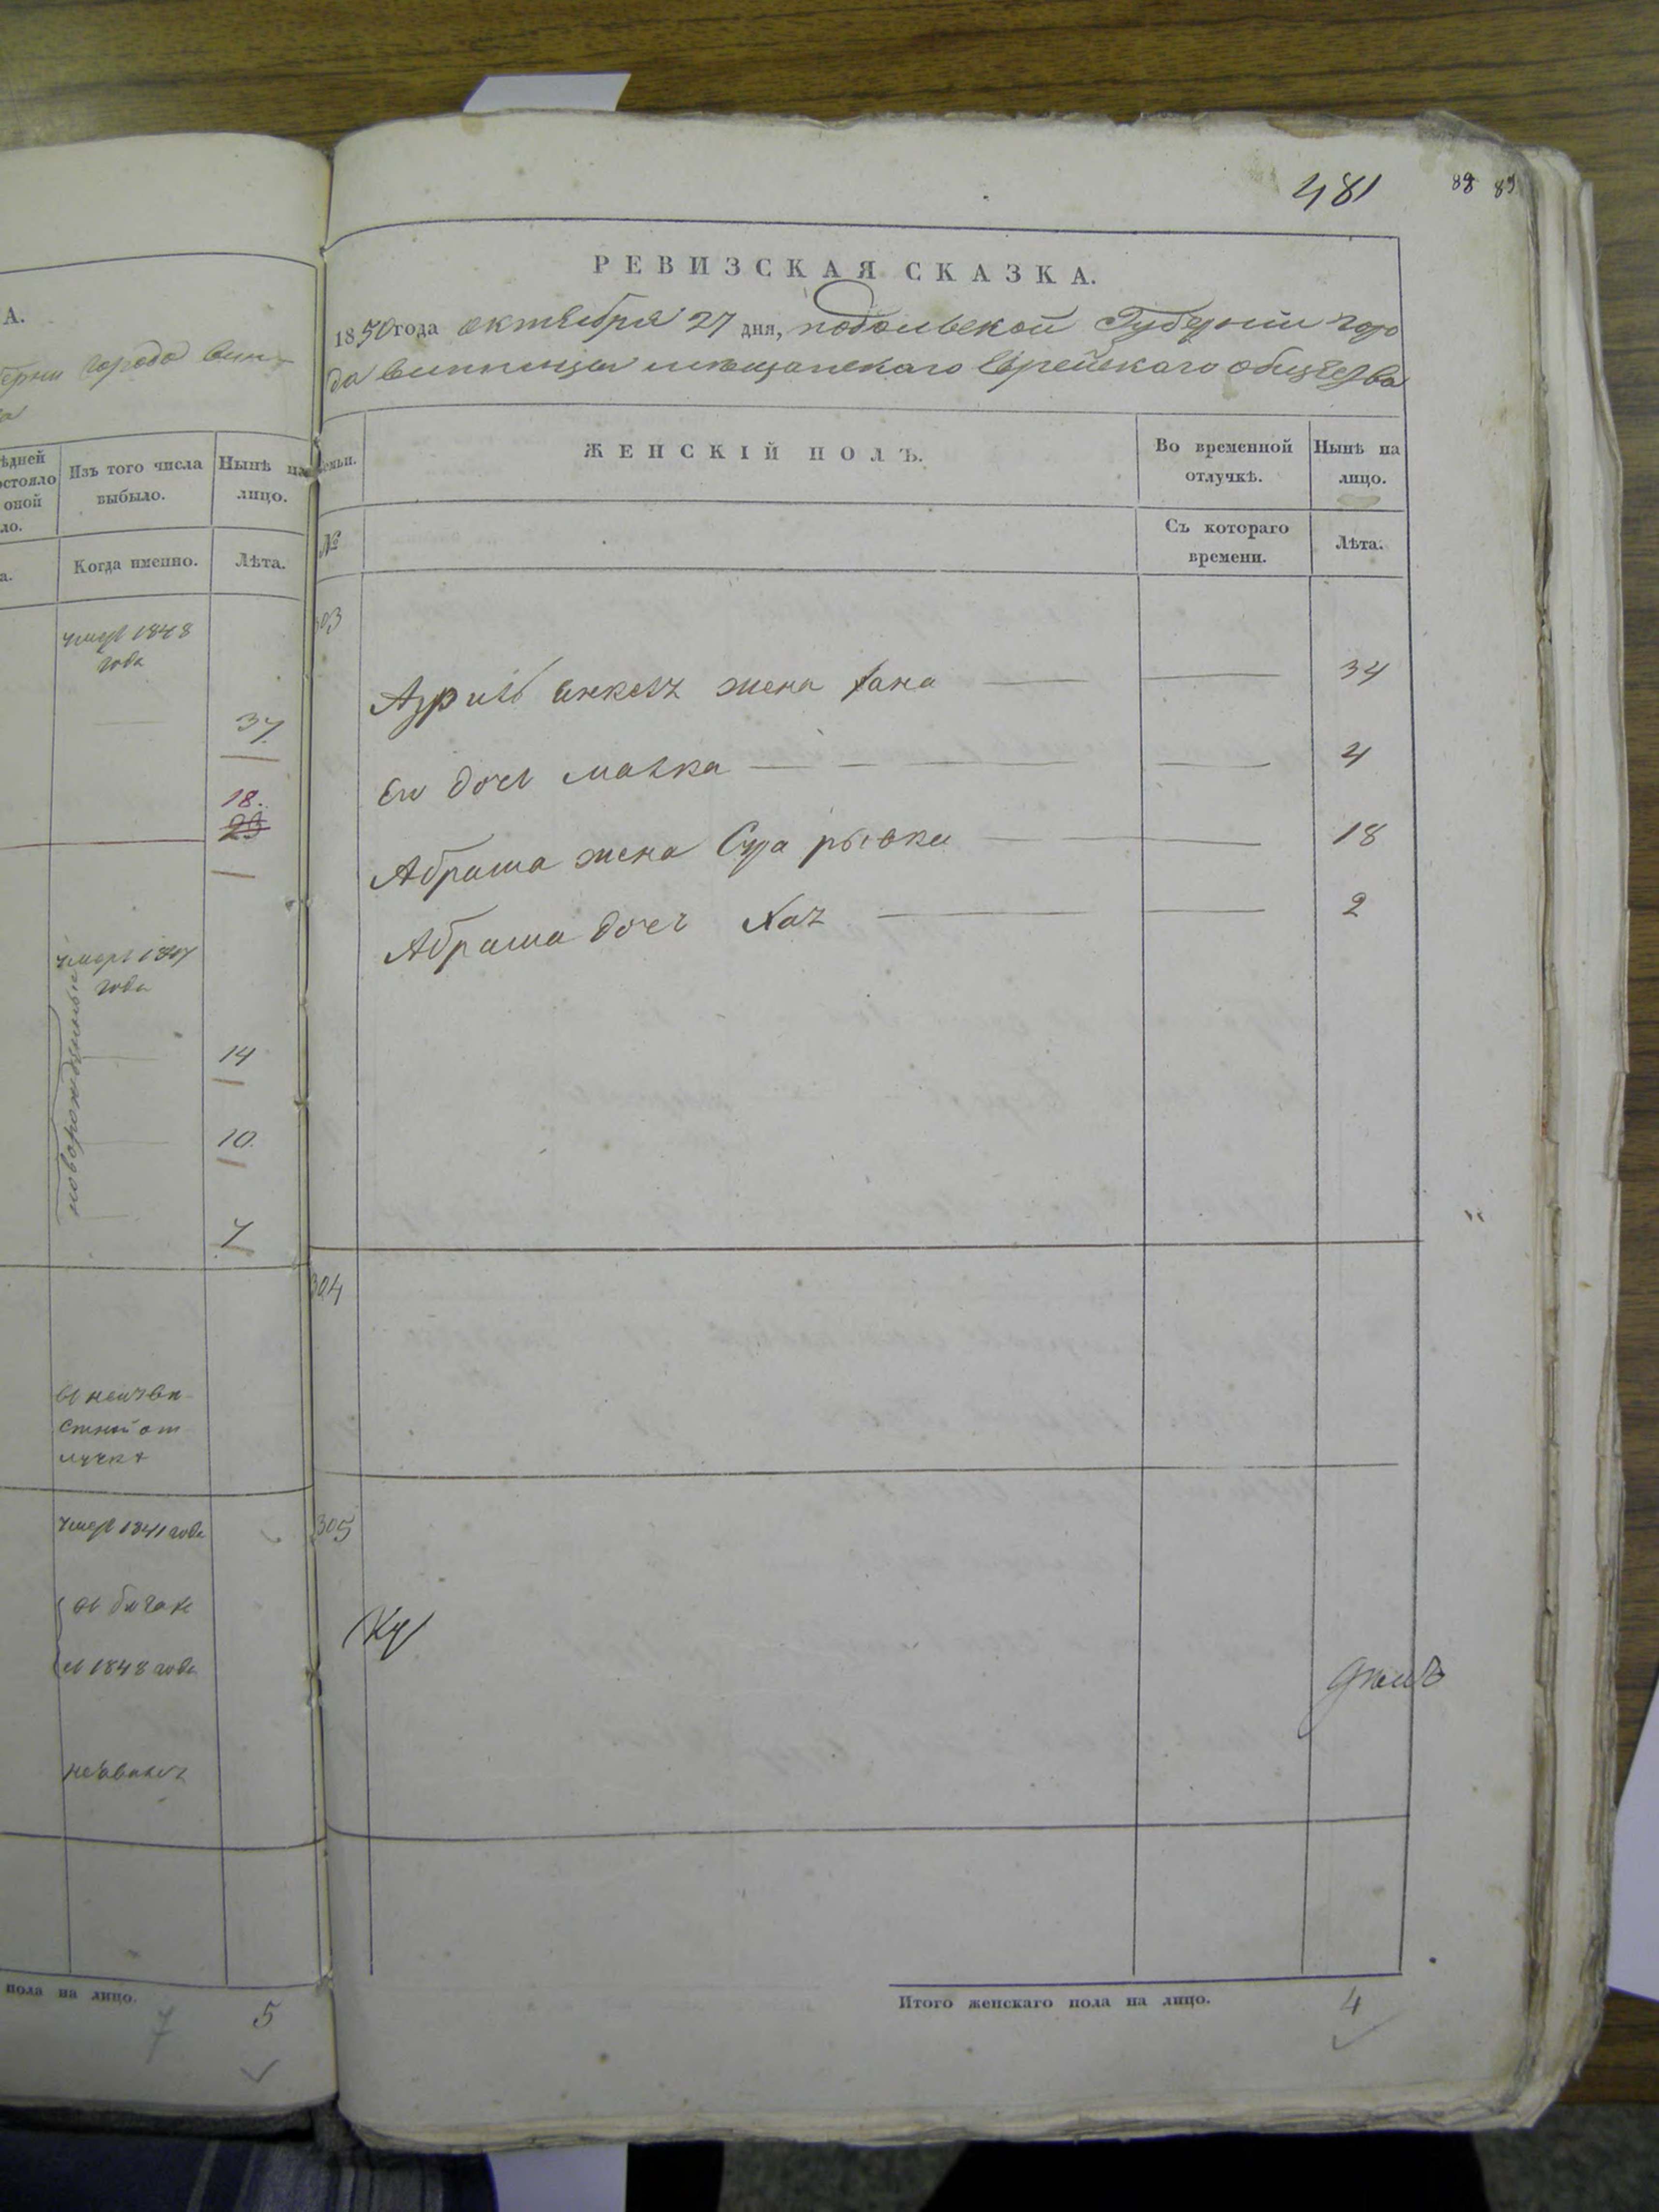 481
88 89
А.
города Вин-
ѣдней
остояло
оной
ло.
Изъ того числа
выбыло.
Нынѣ на
лицо.
а.
Когда именно.
Лѣта.
умеръ 1848
года
37
18.
23
умеръ
года
новорожденные
14
10.
7
въ неизвѣ
стной от
лучкѣ
умеръ 1841 года
въ бѣгах
съ 1848 года
пола на лицо.
7 5
РЕВИЗСКАЯ СКАЗКА.
1850 года октября 27 дня, подольской Губерніи горо
да винницы мѣщанскаго Еврейскаго общества
семьи.
ЖЕНСКІЙ ПОЛЪ.
Во временной
отлучкѣ.
Нынѣ на
лицо.
№
Съ котораго
времени.
Лѣта.
303
жена Хана 34
Ею дочь малка 4
Абрама жена Сура рывка 18
Абрама дочь 2
304
305
Итого женскаго пола на лицо. 4